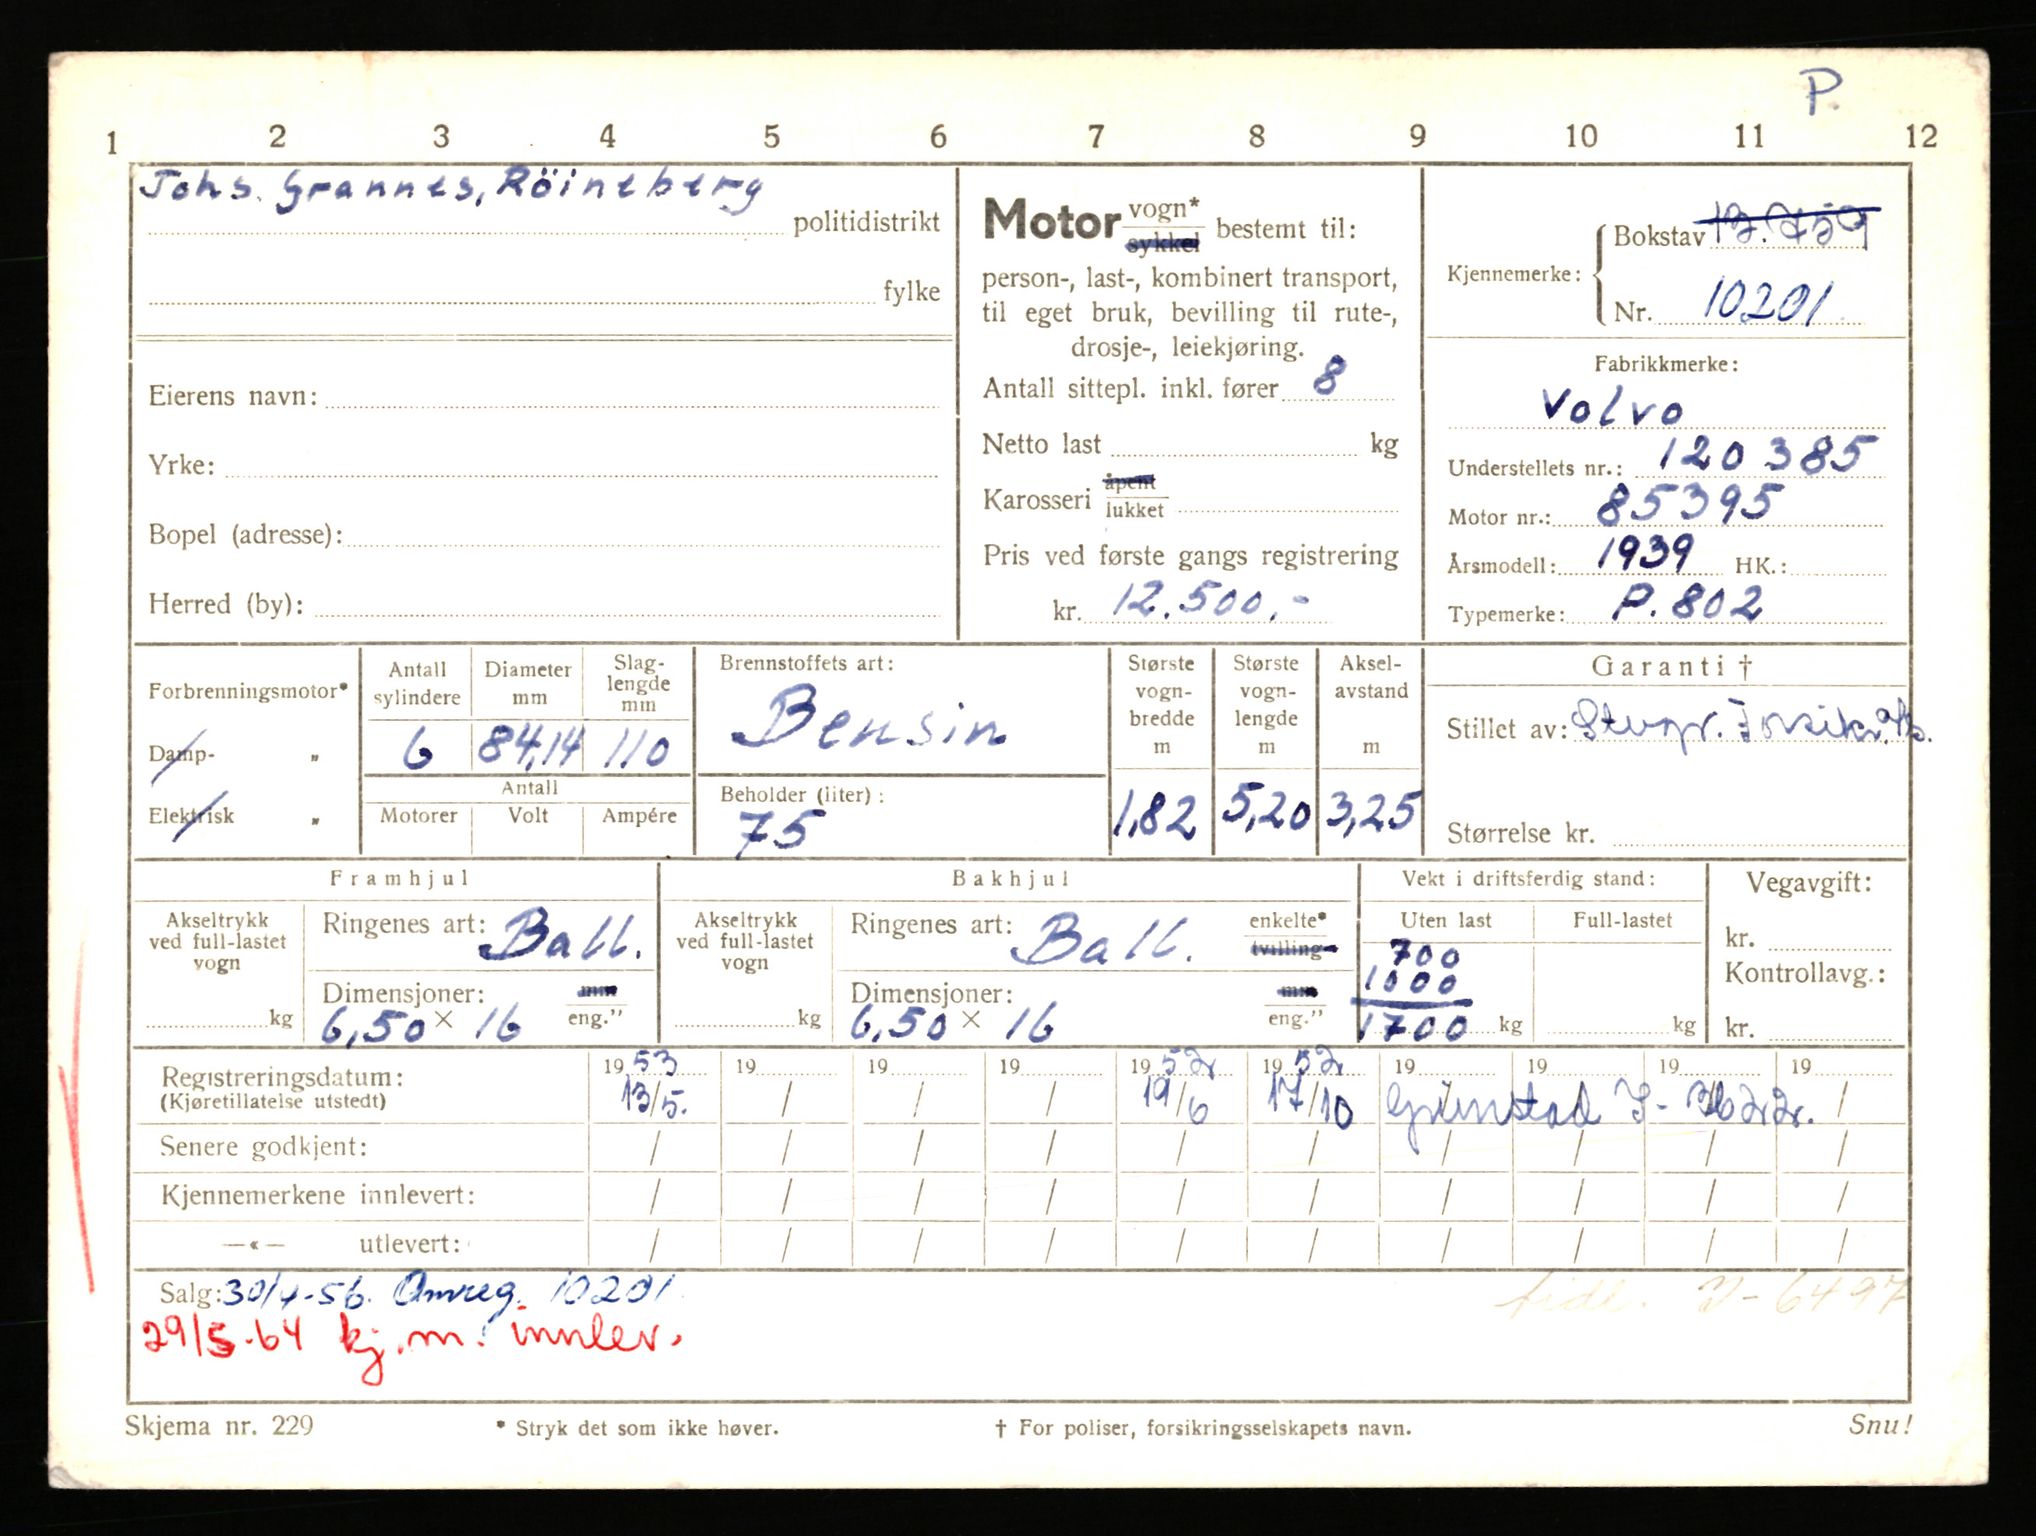 P.
1 2 3 4 5 6 7 8 9 10 11 12
Johs. Grannes, Röineberg
politidistrikt
fylke
Eierens navn:
Yrke:
Bopel (adresse):
Herred (by):
Motor vogn* sykkel bestemt til:
person-, last-, kombinert transport,
til eget bruk, bevilling til rute-,
drosje-, leiekjøring.
Antall sittepl. inkl. fører 8
Netto last kg
Karosseri åpent lukket
Pris ved første gangs registrering
kr. 12.500,-
Kjennemerke:
Bokstav
Nr. 10201
Fabrikkmerke:
Volvo
Understellets nr.: 120385
Motor nr.: 85395
Årsmodell: 1939 HK.:
Typemerke: P. 802
Forbrenningsmotor*
Damp- "
Elektrisk "
Antall sylindere
6
Diameter mm
84,14
Slag-lengde mm
110
Antall
Motorer Volt Ampére
Brennstoffets art:
Bensin
Beholder (liter) :
75
Største vogn-bredde m
1,82
Største vogn-lengde m
5,20
Aksel-avstand m
3,25
Garanti †
Stillet av:
Størrelse kr.
Framhjul
Akseltrykk ved full-lastet vogn
kg
Ringenes art: Ball.
Dimensjoner: mm
6,50 × 16 eng."
Bakhjul
Akseltrykk ved full-lastet vogn
kg
Ringenes art: Ball. enkelte* tvilling-
Dimensjoner: mm
6,50 × 16 eng."
Vekt i driftsferdig stand:
Uten last Full-lastet
700
1000
1700 kg kg
Vegavgift:
kr.
Kontrollavg.:
kr.
Registreringsdatum:
(Kjøretillatelse utstedt)
1953 19 19 19 1952 1952 19 19 19 19
13/5. / / / 19/6 17/10 Grimstad
Senere godkjent: / / / / / / / / / /
Kjennemerkene innlevert: / / / / / / / / / /
—«— utlevert: / / / / / / / / / /
Salg: 30/4-56. Omreg. 10201
tidl. V-6497
29/5-64 kj.m. innlev.
Skjema nr. 229
* Stryk det som ikke høver.
† For poliser, forsikringsselskapets navn.
Snu!